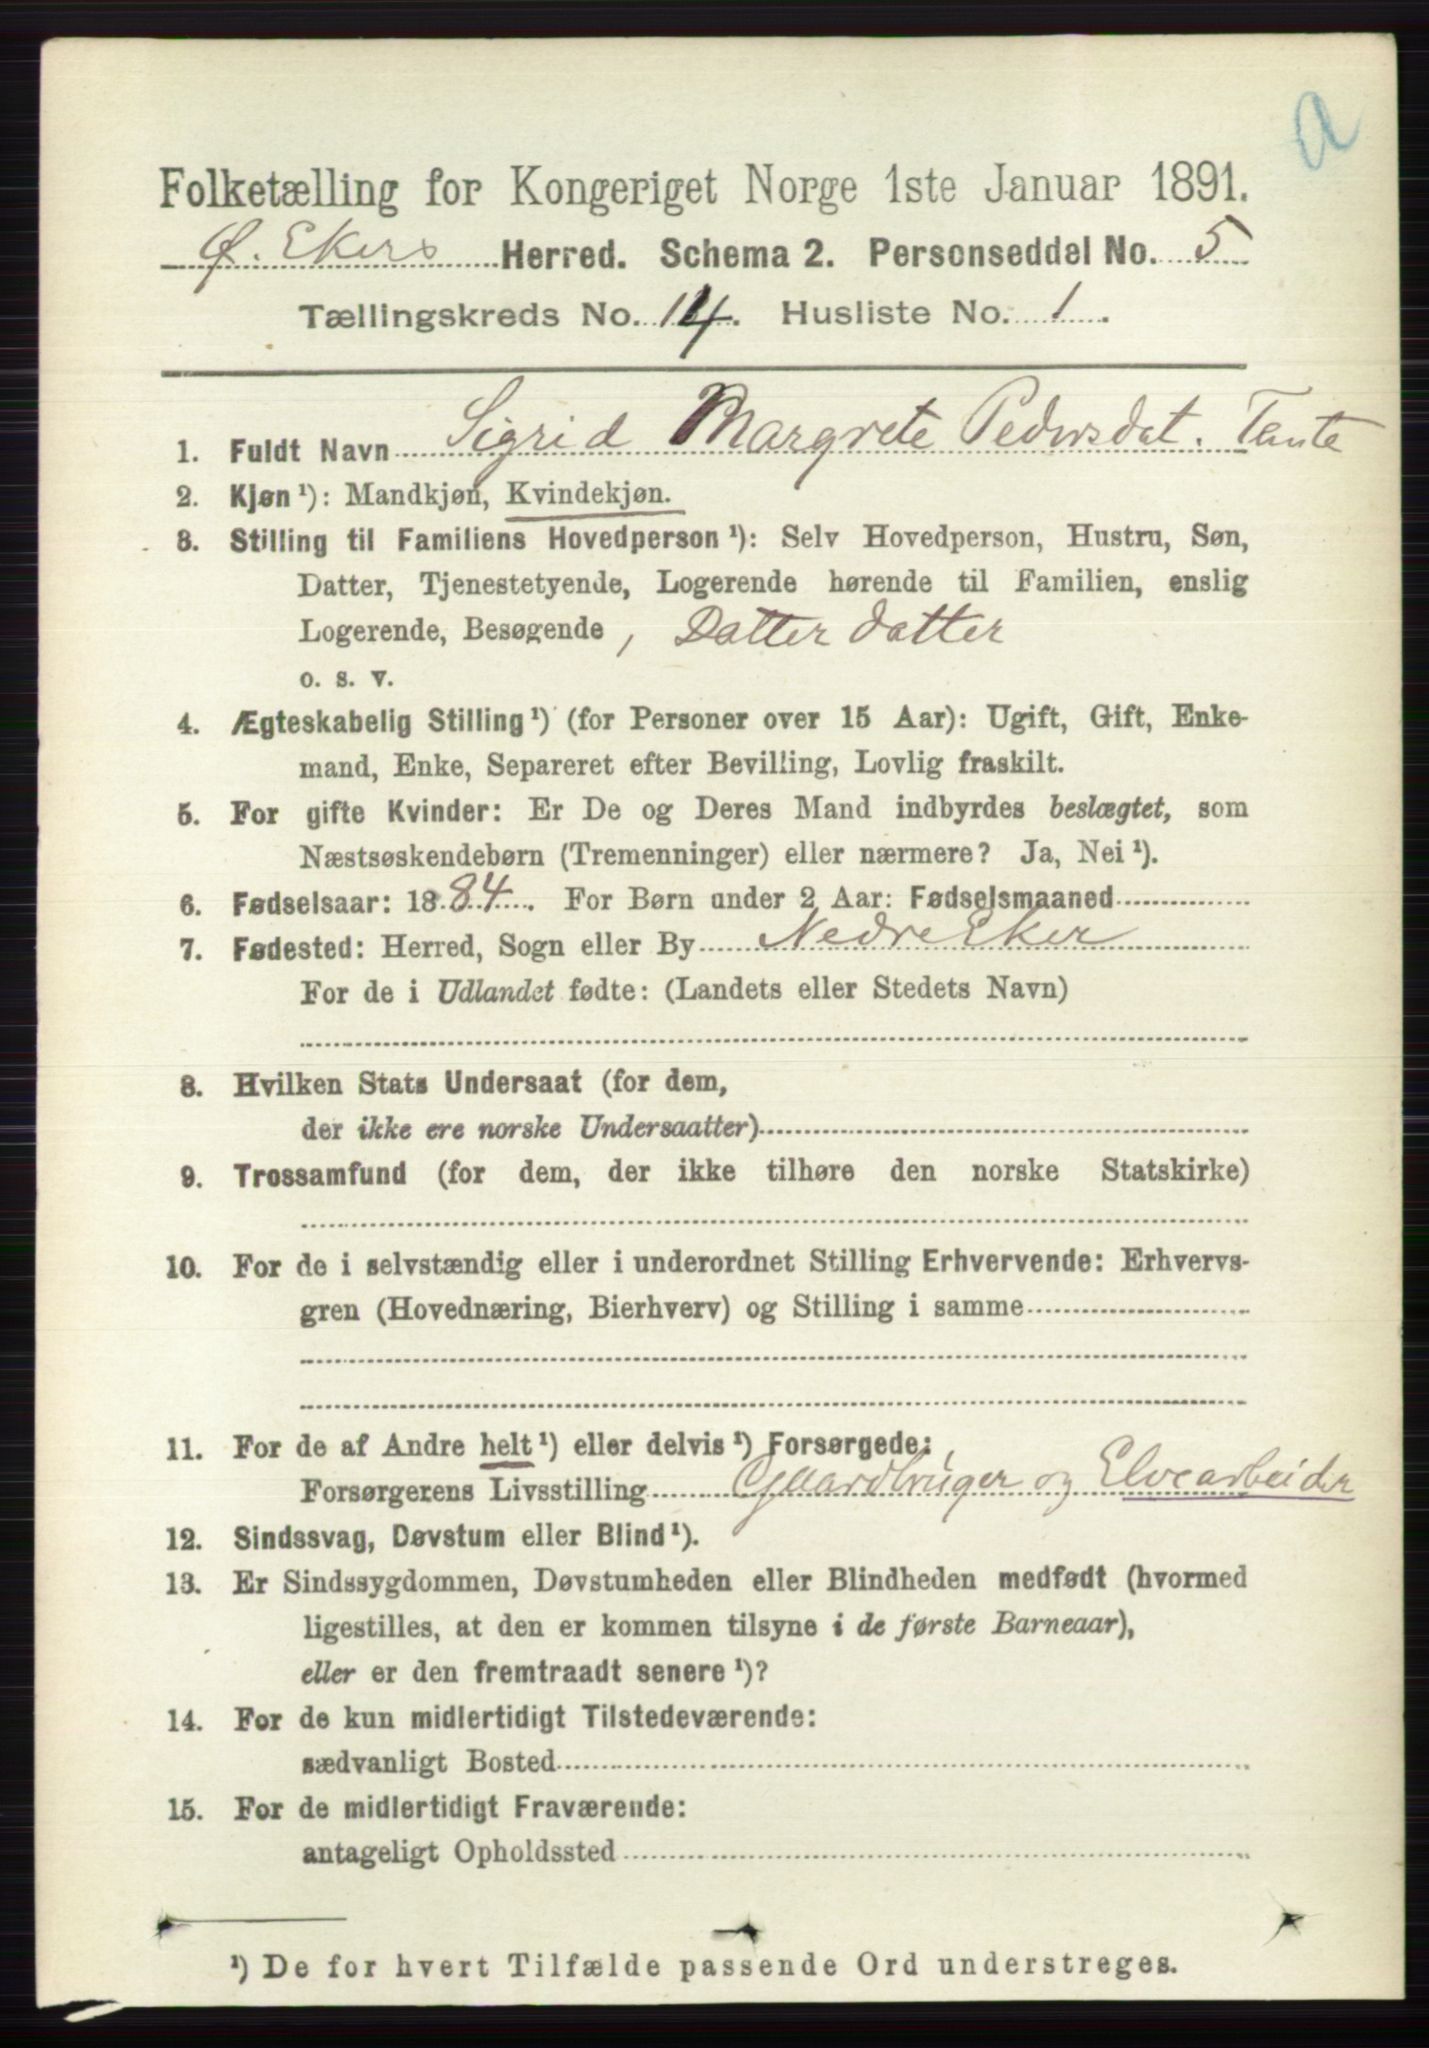 a
Folketælling for Kongeriget Norge 1ste Januar 1891.
Ø. Ekers Herred. Schema 2. Personseddel No. 5
Tællingskreds No. 14. Husliste No. 1.
1. Fuldt Navn Sigrid Margrete Pedersdat. Tante
2. Kjøn ¹): Mandkjøn, Kvindekjøn.
3. Stilling til Familiens Hovedperson ¹): Selv Hovedperson, Hustru, Søn,
Datter, Tjenestetyende, Logerende hørende til Familien, enslig
Logerende, Besøgende, Datter datter
o. s. v.
4. Ægteskabelig Stilling ¹) (for Personer over 15 Aar): Ugift, Gift, Enke-
mand, Enke, Separeret efter Bevilling, Lovlig fraskilt.
5. For gifte Kvinder: Er De og Deres Mand indbyrdes beslægtet, som
Næstsøskendebørn (Tremenninger) eller nærmere? Ja, Nei ¹).
6. Fødselsaar: 1884. For Børn under 2 Aar: Fødselsmaaned
7. Fødested: Herred, Sogn eller By Nedre Eker
For de i Udlandet fødte: (Landets eller Stedets Navn)
8. Hvilken Stats Undersaat (for dem,
der ikke ere norske Undersaatter)
9. Trossamfund (for dem, der ikke tilhøre den norske Statskirke)
10. For de i selvstændig eller i underordnet Stilling Erhvervende: Erhvervs-
gren (Hovednæring, Bierhverv) og Stilling i samme
11. For de af Andre helt ¹) eller delvis ¹) Forsørgede:
Forsørgerens Livsstilling Gaardbruger og Elvearbeider
12. Sindssvag, Døvstum eller Blind ¹).
13. Er Sindssygdommen, Døvstumheden eller Blindheden medfødt (hvormed
ligestilles, at den er kommen tilsyne i de første Barneaar),
eller er den fremtraadt senere ¹)?
14. For de kun midlertidigt Tilstedeværende:
sædvanligt Bosted
15. For de midlertidigt Fraværende:
antageligt Opholdssted
¹) De for hvert Tilfælde passende Ord understreges.